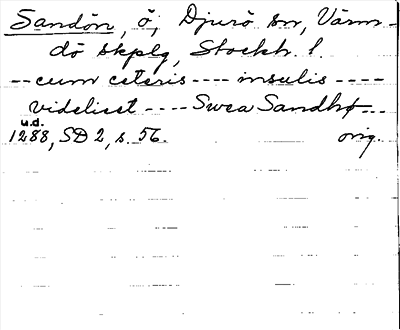 Sandön, ö, Djurö sn, Värm-
dö skplg, Stockh. l.
-- cum ceteris ---- insulis ----
videlicet ---- Swea Sandhø ---
u.d.
1288, SD 2, s. 56. orig.